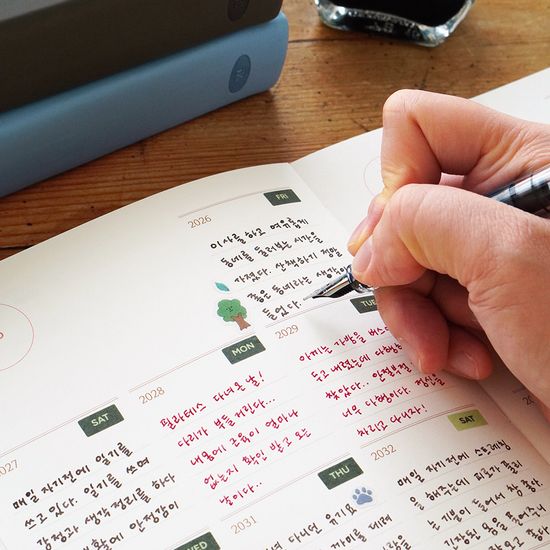 2026
FRI
이사를 하고 여유롭게
동네를 둘러보는 시간을
가졌다. 산책하기 정말
좋은 동네라는 생각이
들었다.
2027
SAT
매일 자기전에 일기를
쓰고 있다. 일기를 쓰며
감정과 생각 정리를 하다
안정감이
2028
MON
필라테스 다녀온 날!
다리가 부들거린다...
내 몸에 근육이 얼마나
없는지 확인 받고 오는
날이다...
2029
TUE
아끼는 가방을 버스
두고 내렸는데 다행히
찾았다... 안절부절
너무 다행이다. 정신을
차리고 다니자!
2031
WED
THU
다니던 유기묘
까미를 데려
2032
SAT
매일 자기 전에 스트레칭
을 해주는데 피로가 풀리
는 기분이 들어서 참 좋다.
몸을 풀어주니